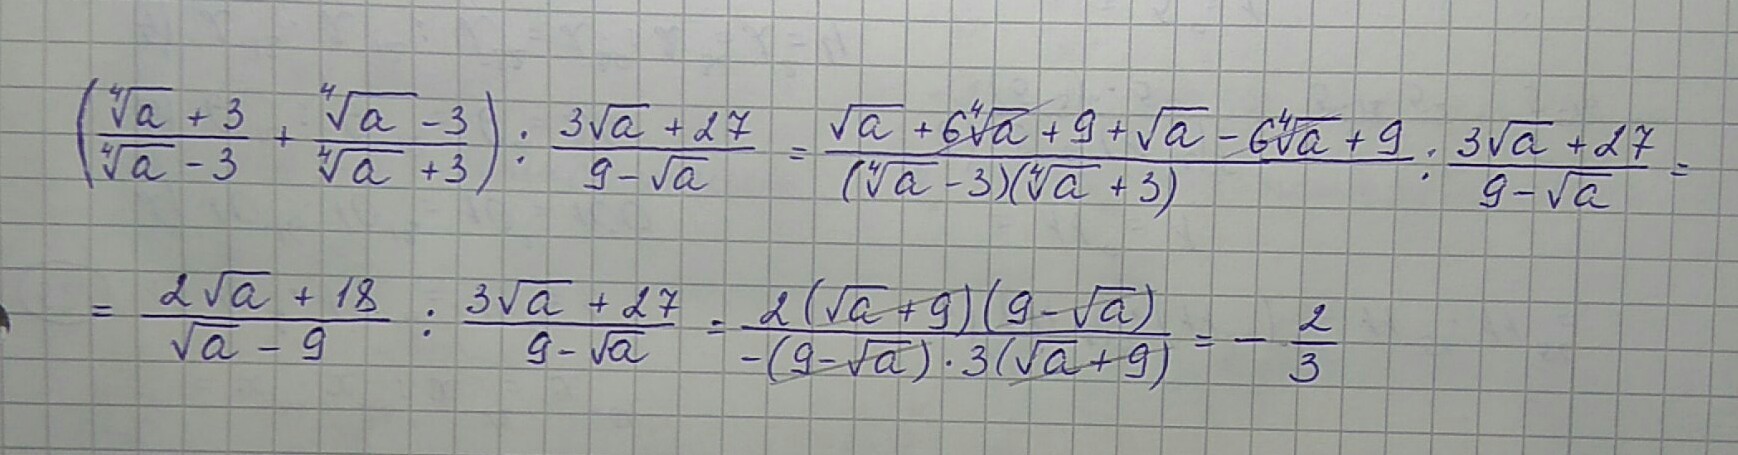 (∜a + 3 / ∜a - 3 + ∜a - 3 / ∜a + 3) : 3√a + 27 / 9 - √a = √a + 6∜a + 9 + √a - 6∜a + 9 / (∜a - 3)(∜a + 3) : 3√a + 27 / 9 - √a =
= 2√a + 18 / √a - 9 : 3√a + 27 / 9 - √a = 2(√a + 9)(9 - √a) / -(9 - √a) · 3(√a + 9) = - 2 / 3